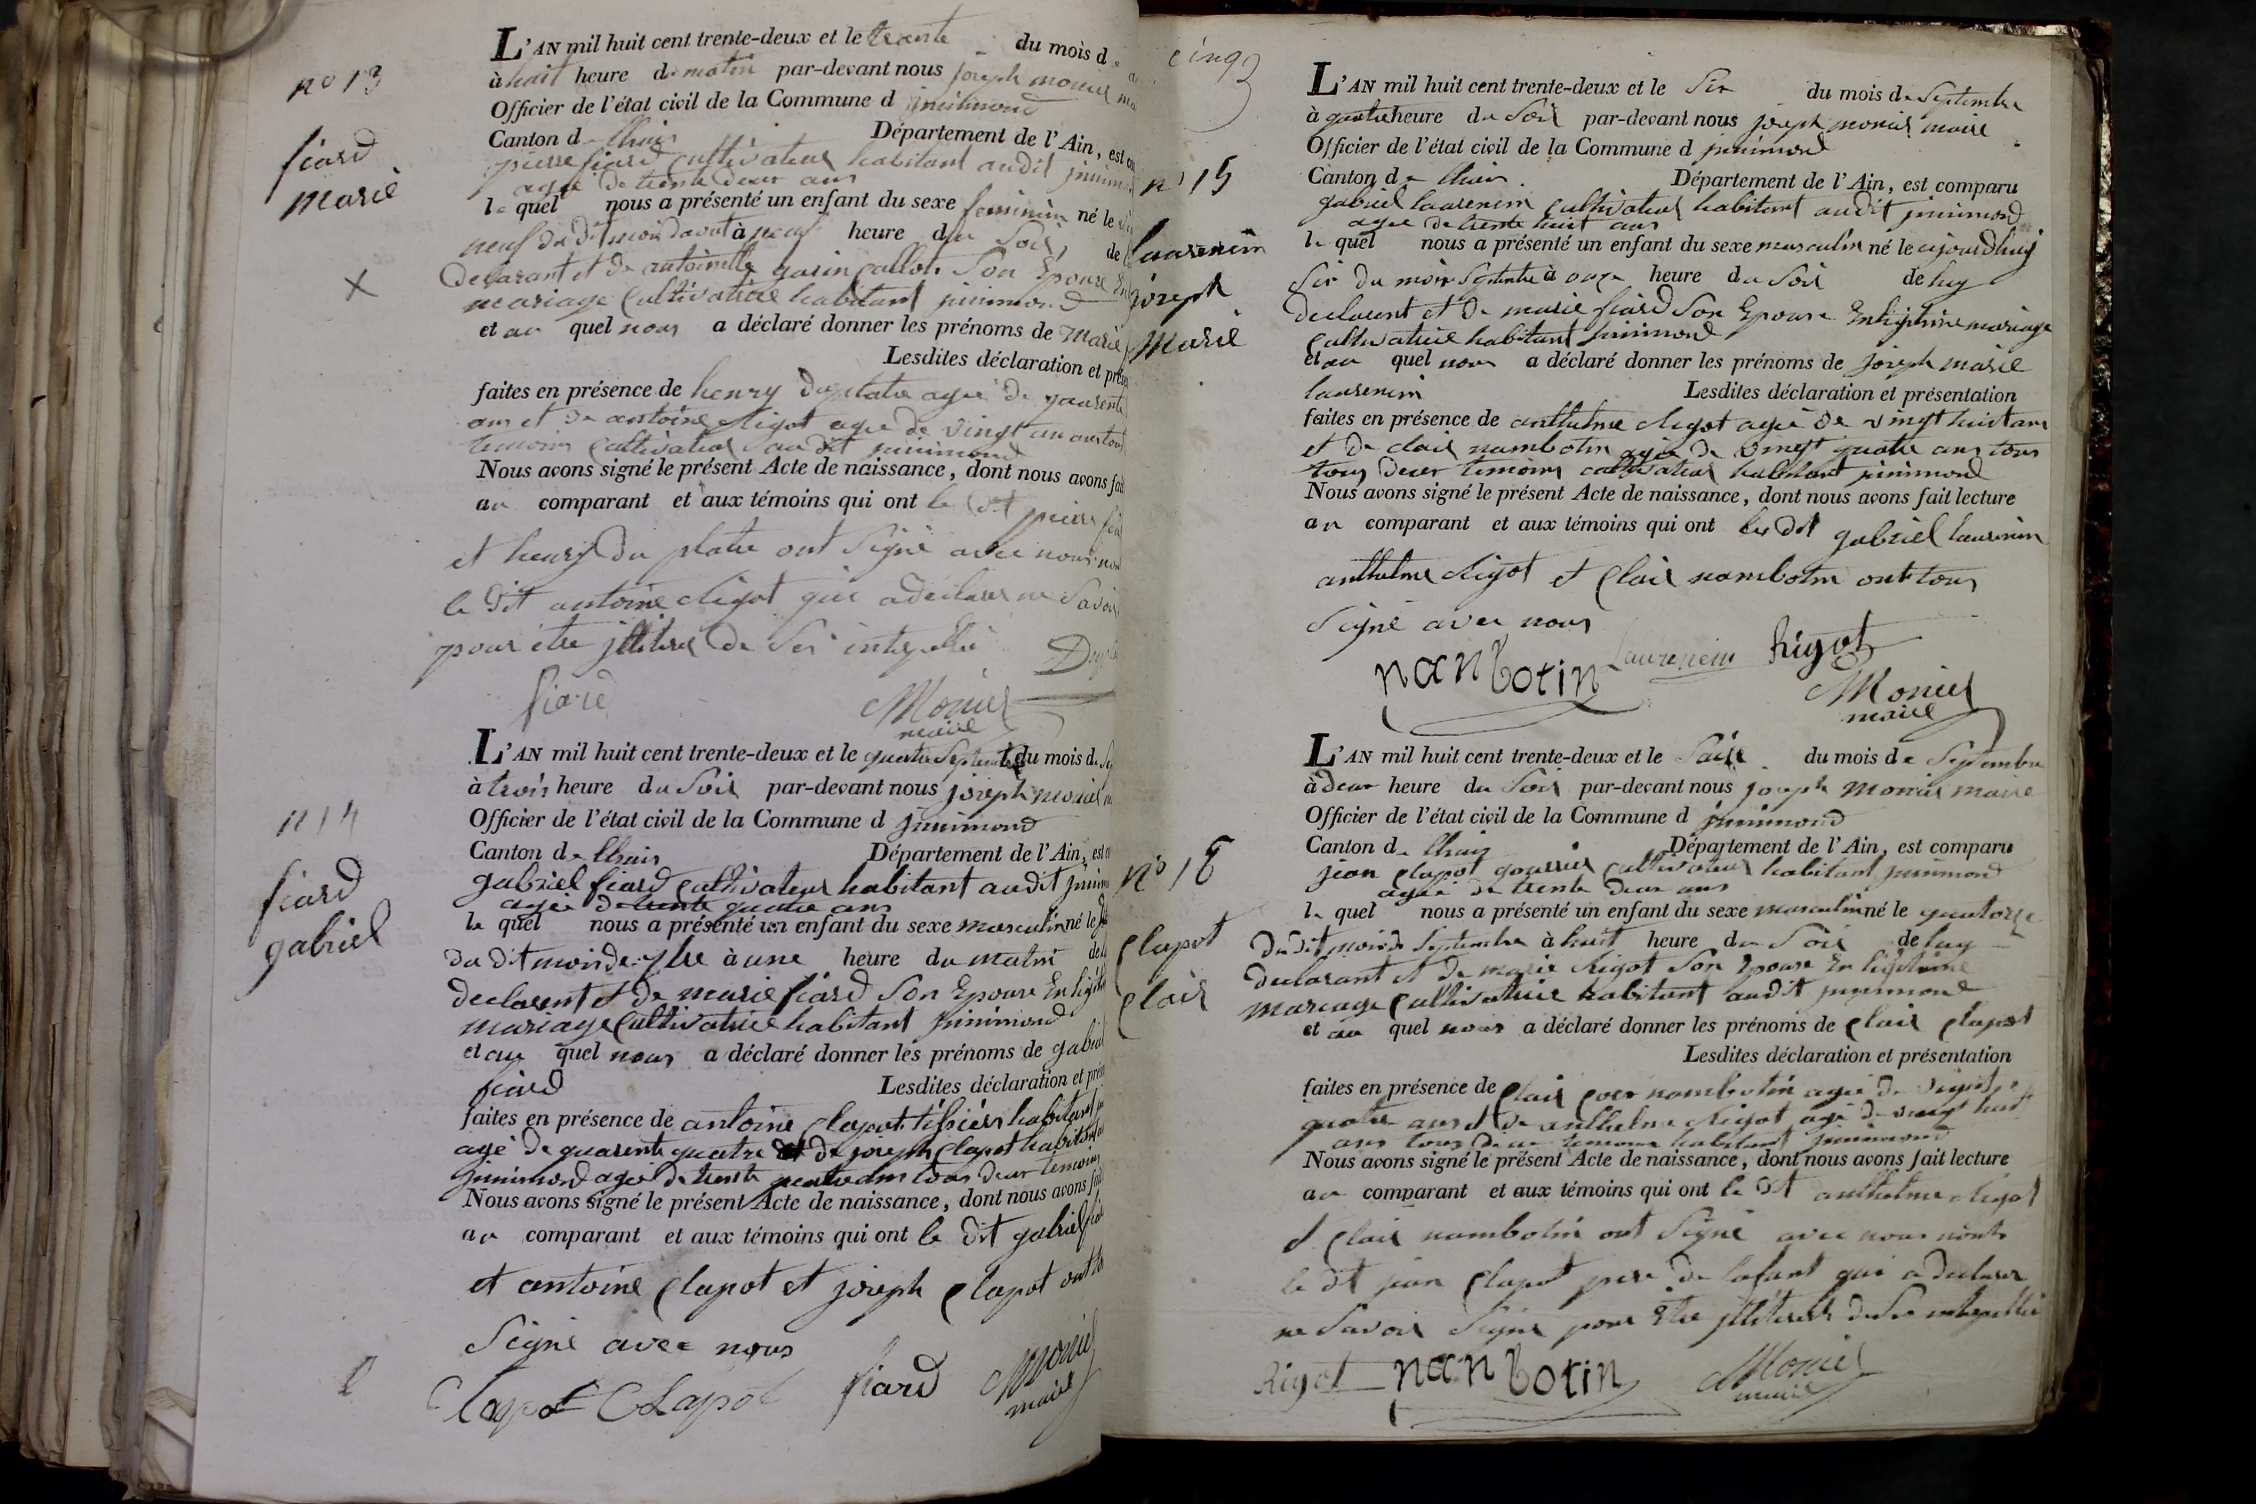 no 13
fiard
marie
L'AN mil huit cent trente-deux et le trente du mois d
à huit heure du matin par-devant nous joseph monier
Officier de l'état civil de la Commune d jnnimond
Canton de lhuis Département de l'Ain, est
pierre fiard cultivateur habitant audit
agé de trente deux ans
le quel nous a présenté un enfant du sexe feminin né le
neuf du dit mois daout à neuf heure du soir, de
declarant et de antoinette son epouse
mariage cultivatrice habitant jnnimond
et au quel nous a déclaré donner les prénoms de marie
Lesdites déclaration et
faites en présence de henry duplatre agé de quarente
ans et de antoine Rigot agé de vingt un ans tous
temoins cultivateur au dit jnnimond
Nous avons signé le présent Acte de naissance, dont nous avons
au comparant et aux témoins qui ont le dit pierre
et henry du platre ont signé avec nous
le dit antoine Rigot qui a declarer ne savoir
pour etre jlliterer de ce intepellé
fiard Monier
maire
n 14
fiard
gabriel
L'AN mil huit cent trente-deux et le quatre septembre du mois de
à trois heure du soir par-devant nous joseph monier
Officier de l'état civil de la Commune d jnnimond
Canton de lhuis Département de l'Ain, est
gabriel fiard cultivateur habitant audit
agé de trente quatre ans
le quel nous a présenté un enfant du sexe masculin né le
du dit mois de 7bre à une heure du matin de
declarent et de marie fiard son epouse En
mariage cultivatrice habitant jnnimond
et au quel nous a déclaré donner les prénoms de gabriel
fiard Lesdites déclaration et
faites en présence de antoine Clapot tissier habitant
agé de quarente quatre et de joseph Clapot
jnnimond agé de trente quatre ans tous deux temoins
Nous avons signé le présent Acte de naissance, dont nous avons
au comparant et aux témoins qui ont le dit gabriel
et antoine Clapot et joseph Clapot ont
signé avec nous
Clapot Clapot fiard Monier
maire
cinq
no 15
laurenein
joseph
marie
L'AN mil huit cent trente-deux et le six du mois de septembre
à quatre heure du soir par-devant nous joseph monier maire
Officier de l'état civil de la Commune d jnnimond
Canton de lhuis Département de l'Ain, est comparu
gabriel laurenein cultivateur habitant audit jnnimond
agé de trente huit ans
le quel nous a présenté un enfant du sexe masculin né le
six du mois septembre à onze heure du soir de luy
declarent et de marie fiard son Epouse En legitime mariage
cultivatrice habitant jnnimond
et au quel nous a déclaré donner les prénoms de joseph marie
laurenein Lesdites déclaration et présentation
faites en présence de anthelme Rigot agé de vingt huit ans
et de clair nambotin agé de vingt quatre ans tous
tous deux temoins cultivateur habitant jnnimond
Nous avons signé le présent Acte de naissance, dont nous avons fait lecture
au comparant et aux témoins qui ont les dit gabriel laurenein
anthelme Rigot et Clair nambotin ont tous
signé avec nous
nanbotin Laurenein Rigot
Monier
maire
no 16
Clapot
Clair
L'AN mil huit cent trente-deux et le saize du mois de septembre
à deux heure du soir par-devant nous joseph monier maire
Officier de l'état civil de la Commune d jnnimond
Canton de lhuis Département de l'Ain, est comparu
jean Clapot cultivateur habitant jnnimond
agé de trente deux ans
le quel nous a présenté un enfant du sexe masculin né le quatorze
du dit mois de septembre à huit heure du soir de luy
declarant et de marie Rigot son Epouse En legitime
mariage cultivatrice habitant audit jnnimond
et au quel nous a déclaré donner les prénoms de Clair Clapot
Lesdites déclaration et présentation
faites en présence de Clair nambotin agé de vingt
quatre ans et de anthelme Rigot agé de vingt huit
ans tous deux temoins habitant jnnimond
Nous avons signé le présent Acte de naissance, dont nous avons fait lecture
au comparant et aux témoins qui ont le dit anthelme Rigot
et Clair nambotin ont signé avec nous
le dit jean Clapot pere de qui a declarer
ne savoir signé pour etre jlliterer de ce intepellé
Rigot nanbotin Monier
maire